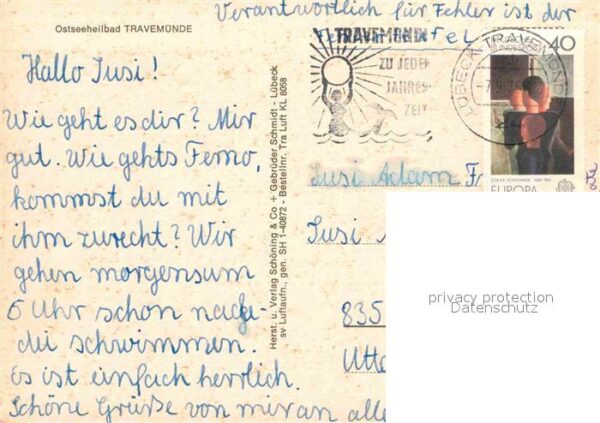 Verantwortlich für Fehler ist der
Ostseeheilbad TRAVEMÜNDE
Hallo Susi!
Wie geht es dir? Mir
gut. Wie gehts Ferno,
kommst du mit
ihm zurecht? Wir
gehen morgens um
6 Uhr schon nacke-
dii schwimmen.
Es ist einfach herrlich.
Schöne Grüße von mir an alle
Herst. u. Verlag Schöning & Co + Gebrüder Schmidt - Lübeck
sv Luftaufn., gen. SH 1-40872 - Bestellnr. Tra Luft KL 8058
TRAVEMÜNDE
ZU JEDER
JAHRES-
ZEIT
LÜBECK-TRAVEMÜNDE
40
EUROPA
Susi Adam
Susi
835
Utte
privacy protection
Datenschutz